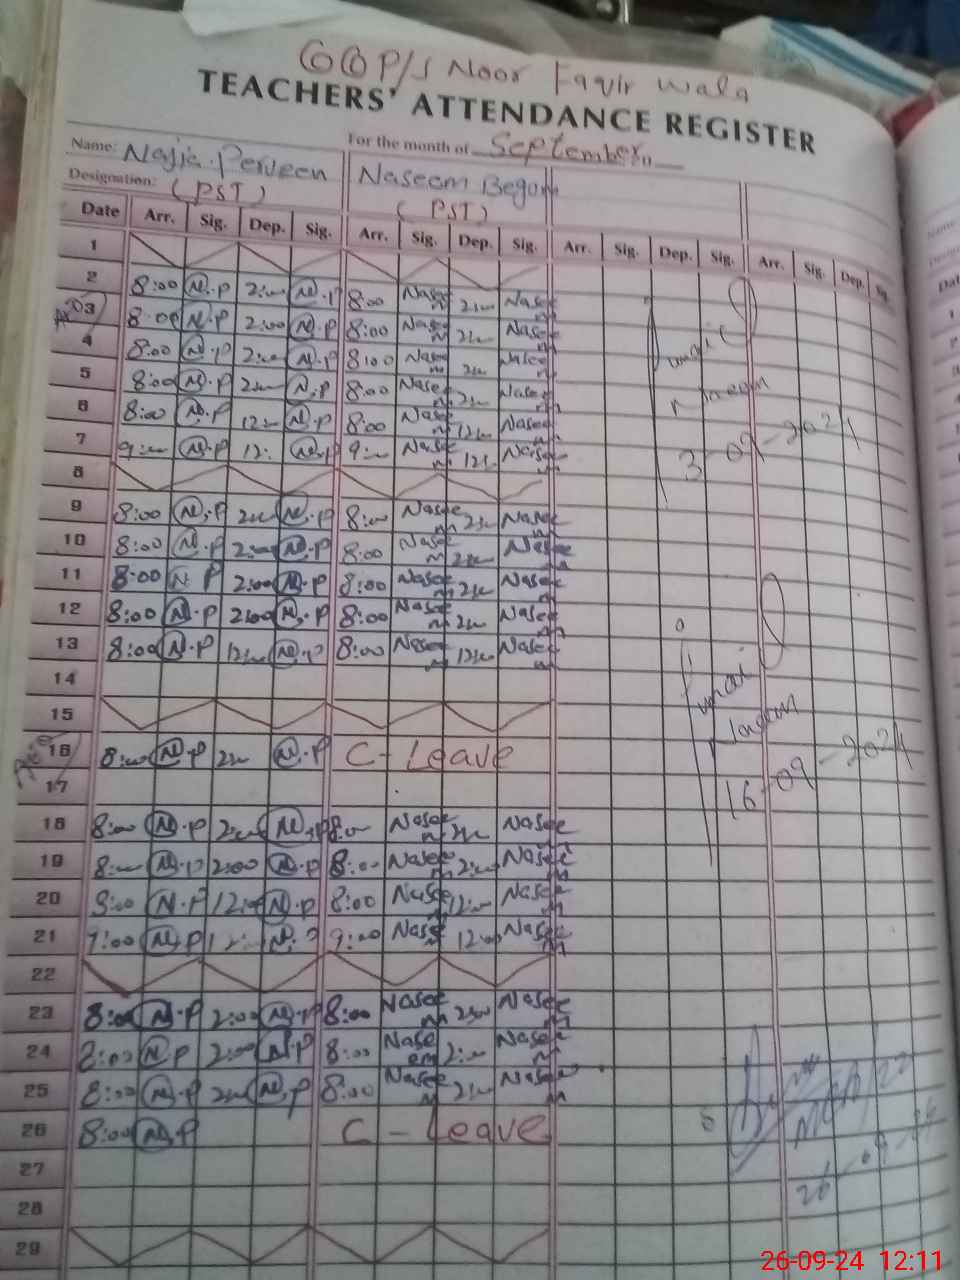 GGP/S Noor Faqir Wala
TEACHERS' ATTENDANCE REGISTER
Name: Najia Perveen Naseem Begum For the month of September
Designation: (PST) (PST)
Date Arr. Sig. Dep. Sig. Arr. Sig. Dep. Sig. Arr. Sig. Dep. Sig. Arr. Sig. Dep. Sig.
1
2 8:00 N.P 2:00 N.P 8:00 Naseem 2:00 Naseem
3 8:00 N.P 2:00 N.P 8:00 Naseem 2:00 Naseem
4 8:00 N.P 2:00 N.P 8:00 Naseem 2:00 Naseem
5 8:00 N.P 2:00 N.P 8:00 Naseem 2:00 Naseem
6 8:00 N.P 12:00 N.P 8:00 Naseem 12:00 Naseem
7 9:00 N.P 12: N.P 9:00 Naseem 12:00 Naseem
3-09-2024
8
9 8:00 N.P 2:00 N.P 8:00 Naseem 2:00 Naseem
10 8:00 N.P 2:00 N.P 8:00 Naseem 2:00 Naseem
11 8:00 N P 2:00 N.P 8:00 Naseem 2:00 Naseem
12 8:00 N.P 2:00 N.P 8:00 Naseem 2:00 Naseem
13 8:00 N.P 12:00 N.P 8:00 Naseem 12:00 Naseem
14
15
16 8:00 N.P 2:00 N.P C-Leave
16-09-2024
17
18 8:00 N.P 2:00 N.P 8:00 Naseem 2:00 Naseem
19 8:00 N.P 2:00 N.P 8:00 Naseem 2:00 Naseem
20 8:00 N.P 12:00 N.P 8:00 Naseem 12:00 Naseem
21 9:00 N.P 12:00 N.P 9:00 Naseem 12:00 Naseem
22
23 8:00 N.P 2:00 N.P 8:00 Naseem 2:00 Naseem
24 8:00 N.P 2:00 N.P 8:00 Naseem 2:00 Naseem
25 8:00 N.P 2:00 N.P 8:00 Naseem 2:00 Naseem
26 8:00 N.P C-Leave
26-09-24
27
28
29
26-09-24 12:11